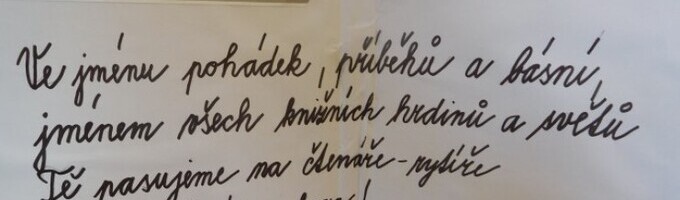 Ve jménu pohádek, příběhů a básní,
jménem všech knižních hrdinů a světů
Tě pasujeme na čtenáře-rytíře